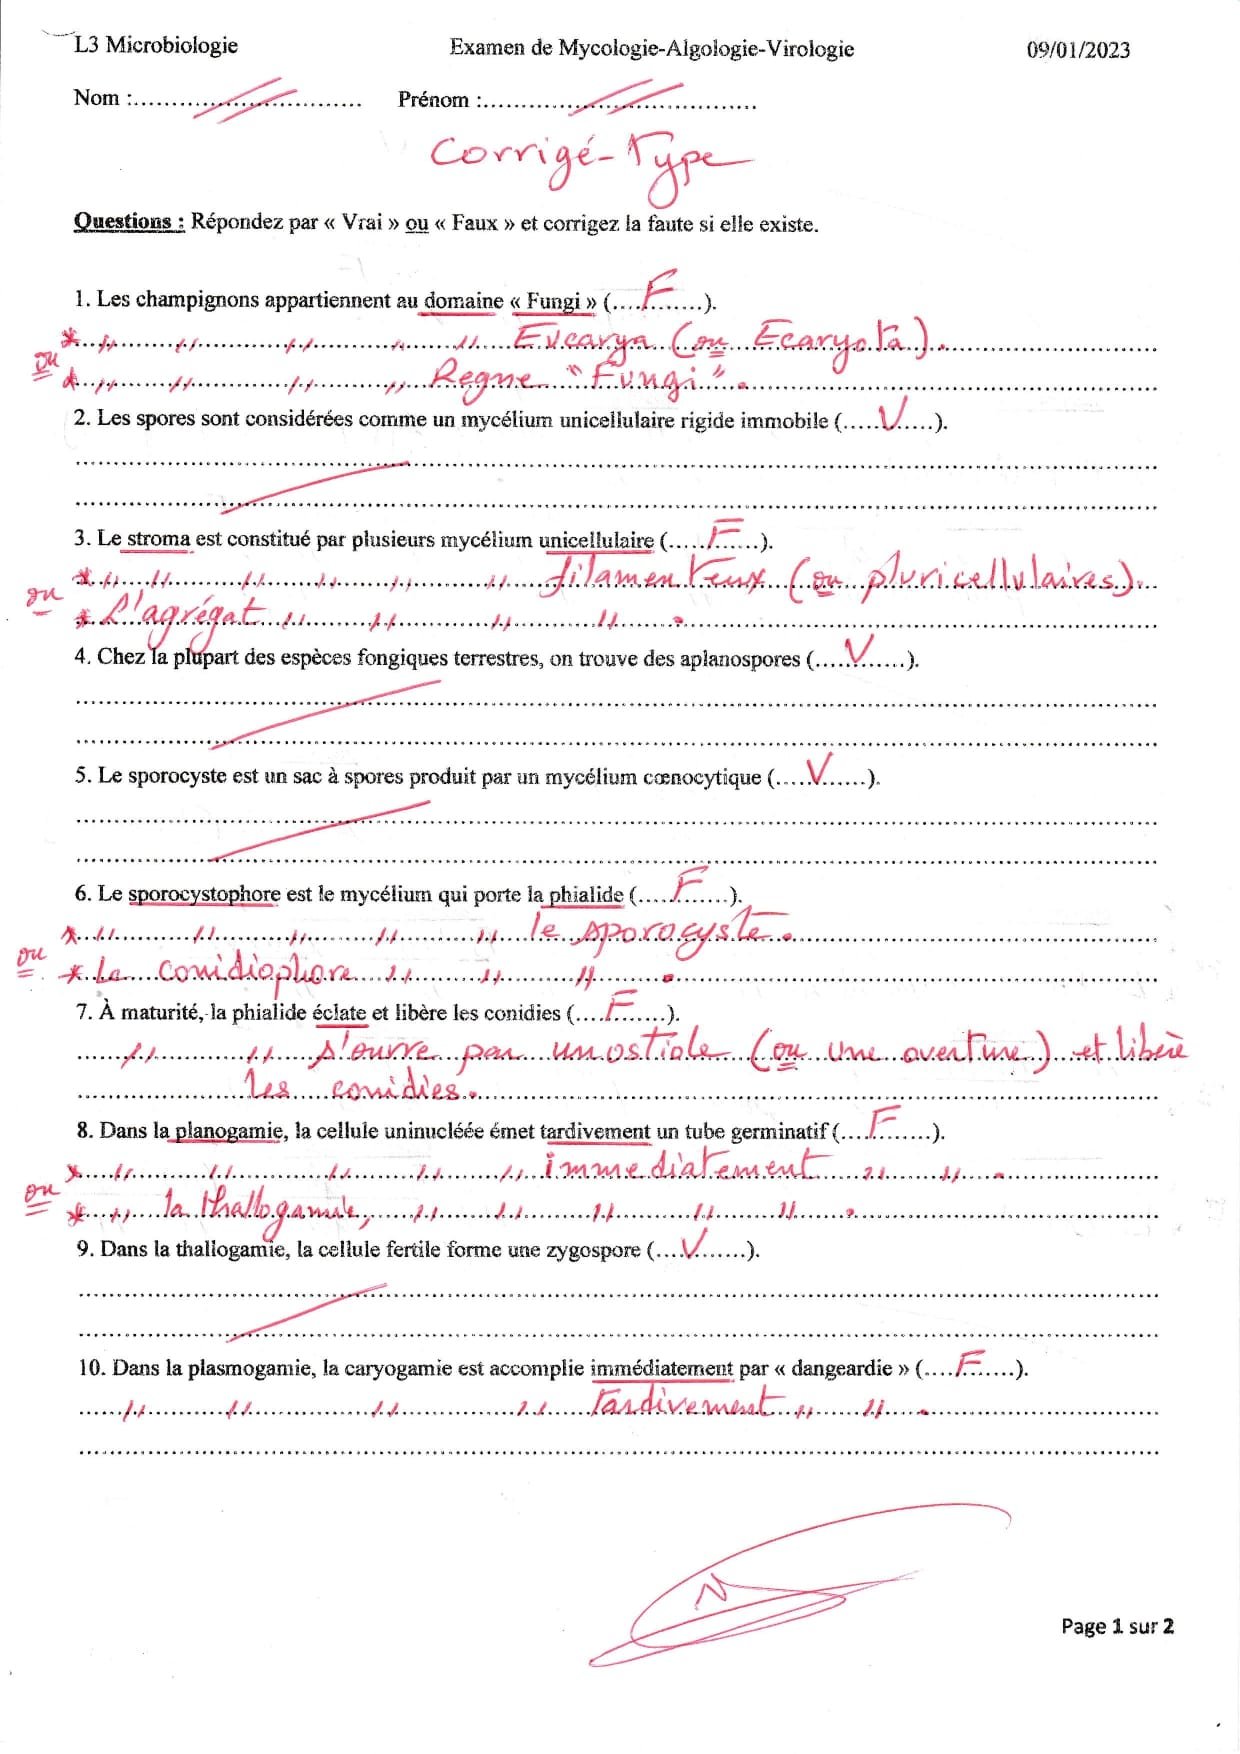 L3 Microbiologie Examen de Mycologie-Algologie-Virologie 09/01/2023
Nom :............................. Prénom :....................................
Corrigé-Type
Questions : Répondez par « Vrai » ou « Faux » et corrigez la faute si elle existe.
1. Les champignons appartiennent au domaine « Fungi » (....F.......).
* " " " " " Eucarya (ou Ecaryota).
ou * " " " " Regne "Fungi".
2. Les spores sont considérées comme un mycélium unicellulaire rigide immobile (.....V.....).
3. Le stroma est constitué par plusieurs mycélium unicellulaire (.....F......).
* " " " " " " filamenteux (ou pluricellulaires).
ou * L'agrégat " " " " .
4. Chez la plupart des espèces fongiques terrestres, on trouve des aplanospores (....V.......).
5. Le sporocyste est un sac à spores produit par un mycélium cœnocytique (....V......).
6. Le sporocystophore est le mycélium qui porte la phialide (....F.......).
* " " " " " le sporocyste.
ou * Le conidiophore " " " .
7. À maturité, la phialide éclate et libère les conidies (....F.......).
" " s'ouvre par un ostiole (ou une overture) et libère
les conidies.
8. Dans la planogamie, la cellule uninucléée émet tardivement un tube germinatif (....F.......).
* " " " " " immediatement " " .
ou * " la thallogamie, " " " " " .
9. Dans la thallogamie, la cellule fertile forme une zygospore (....V.......).
10. Dans la plasmogamie, la caryogamie est accomplie immédiatement par « dangeardie » (....F......).
" " " " Tardivement " " .
N
Page 1 sur 2